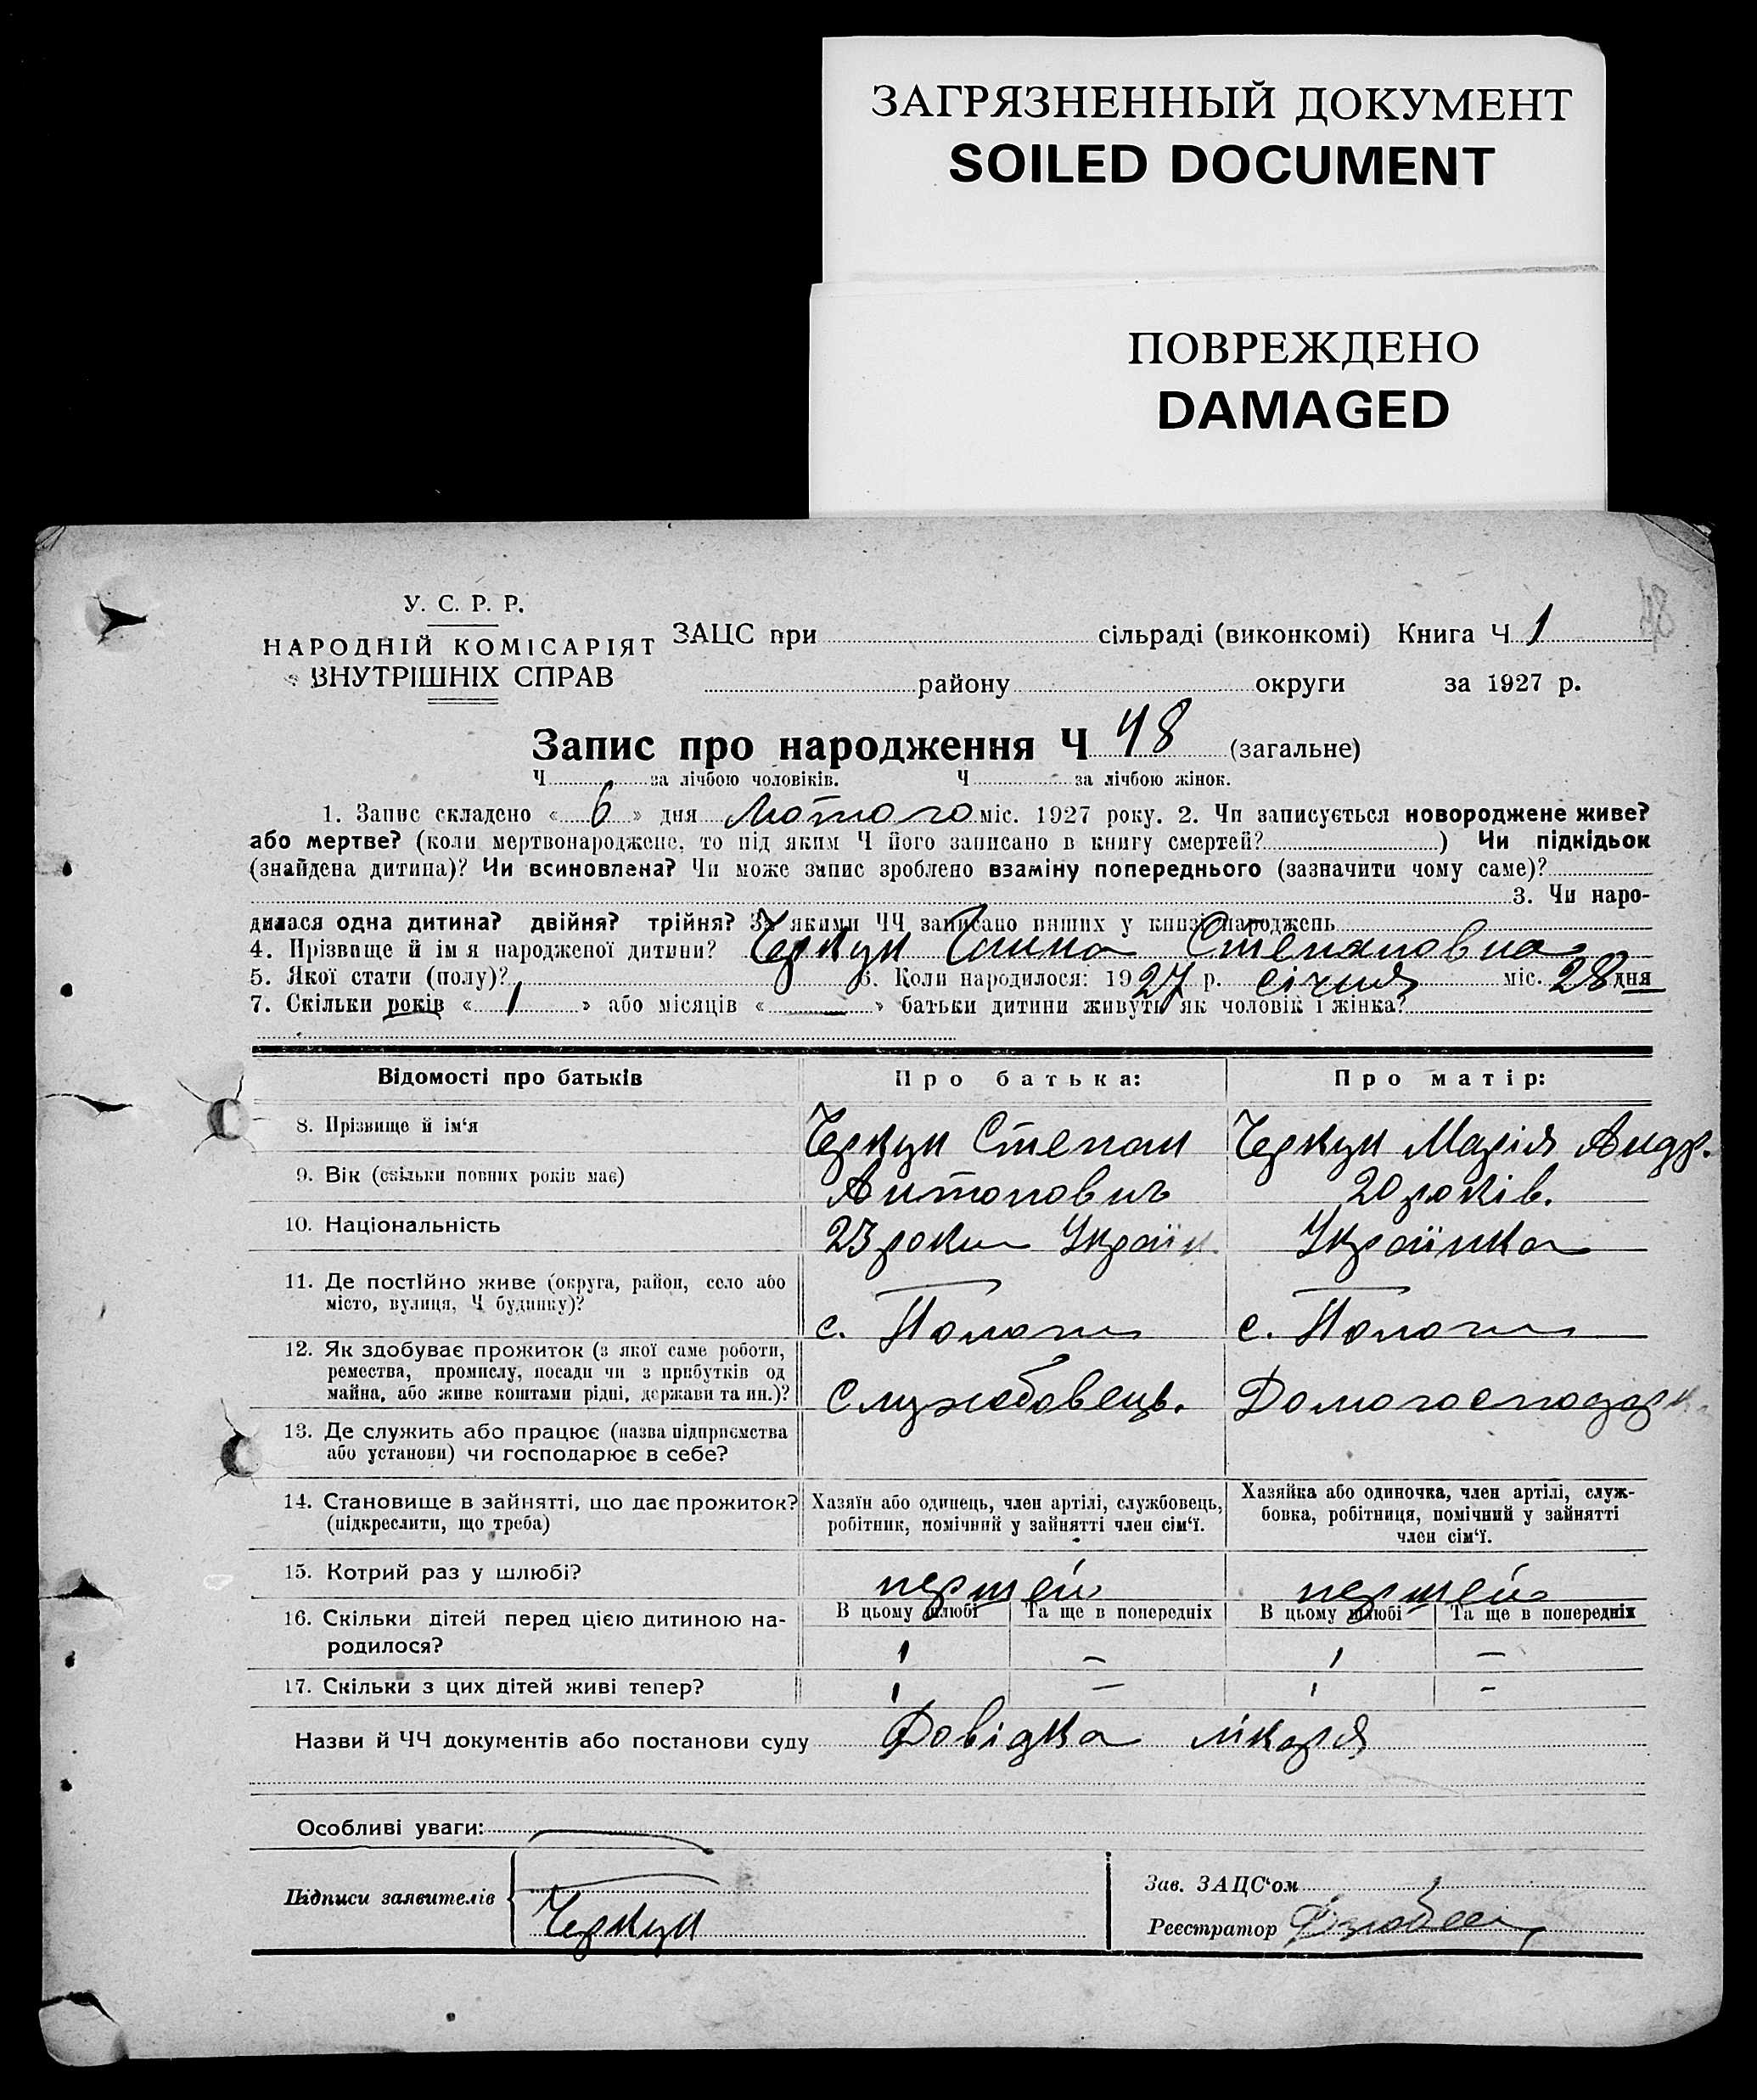 ЗАГРЯЗНЕННЫЙ ДОКУМЕНТ
SOILED DOCUMENT
ПОВРЕЖДЕНО
DAMAGED
48
У. С. Р. Р.
НАРОДНІЙ КОМІСАРІЯТ
ВНУТРІШНІХ СПРАВ
ЗАЦС при сільраді (виконкомі) Книга Ч 1
району округи за 1927 р.
Запис про народження Ч 48 (загальне)
Ч за лічбою чоловіків. Ч за лічбою жінок.
1. Запис складено « 6 » дня Лютого міс. 1927 року. 2. Чи записується новороджене живе?
або мертве? (коли мертвонароджене, то під яким Ч його записано в книгу смертей? ) Чи підкідьок
(знайдена дитина)? Чи всиновлена? Чи може запис зроблено взаміну попереднього (зазначити чому саме)?
3. Чи наро-
дилася одна дитина? двійня? трійня? За якими ЧЧ записано инших у книзі народжень
4. Прізвище й ім я народженої дитини? Черкун Ганна Степановна
5. Якої стати (полу)? 6. Коли народилося: 1927 р. січня міс. 28 дня
7. Скільки років « 1 » або місяців « — » батьки дитини живуть як чоловік і жінка?
Відомості про батьків Про батька: Про матір:
8. Прізвище й ім'я Черкун Степан Черкун Марія Андр.
9. Вік (скільки повних років має) Антонович 20 років.
10. Національність 23 роки Україн. Українка
11. Де постійно живе (округа, район, село або
місто, вулиця, Ч будинку)? с. Пологи с. Пологи
12. Як здобуває прожиток (з якої саме роботи,
ремества, промислу, посади чи з прибутків од
майна, або живе коштами рідні, держави та ин.)? Службовець. Домогосподарка
13. Де служить або працює (назва підприємства
або установи) чи господарює в себе?
14. Становище в зайнятті, що дає прожиток?
(підкреслити, що треба)
Хазяїн або одинець, член артілі, службовець,
робітник, помічний у зайнятті член сім'ї.
Хазяйка або одиночка, член артілі, служ-
бовка, робітниця, помічний у зайнятті
член сім'ї.
15. Котрий раз у шлюбі? первий первий
16. Скільки дітей перед цією дитиною на-
родилося?
В цьому шлюбі Та ще в попередніх В цьому шлюбі Та ще в попередніх
1 — 1 —
17. Скільки з цих дітей живі тепер? 1 — 1 -
Назви й ЧЧ документів або постанови суду Довідка лікаря
Особливі уваги:
Підписи заявителів Черкун
Зав. ЗАЦС'ом
Реєстратор